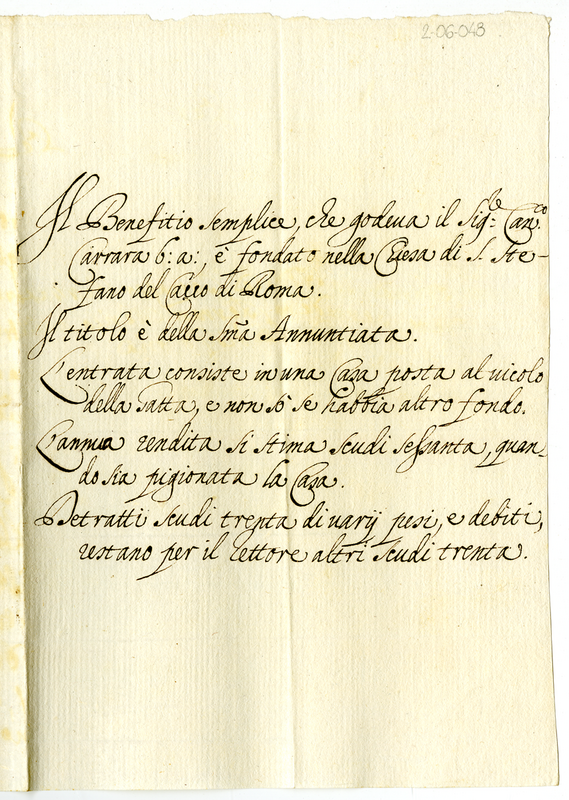 2-06-048
Il Benefitio semplice, che godeua il Sig.le Can.co
Carrara b: a:, è fondato nella Chiesa di S. Ste-
fano del Cacco di Roma.
Il titolo è della Sma Annuntiata.
L'entrata consiste in una Casa posta al uicolo
della Gatta, e non sò se habbia altro fondo.
L'annua rendita si stima scudi sessanta, quan-
do sia pigionata la Casa.
Detratti scudi trenta di varij pesi, e debiti,
restano per il Rettore altri scudi trenta.